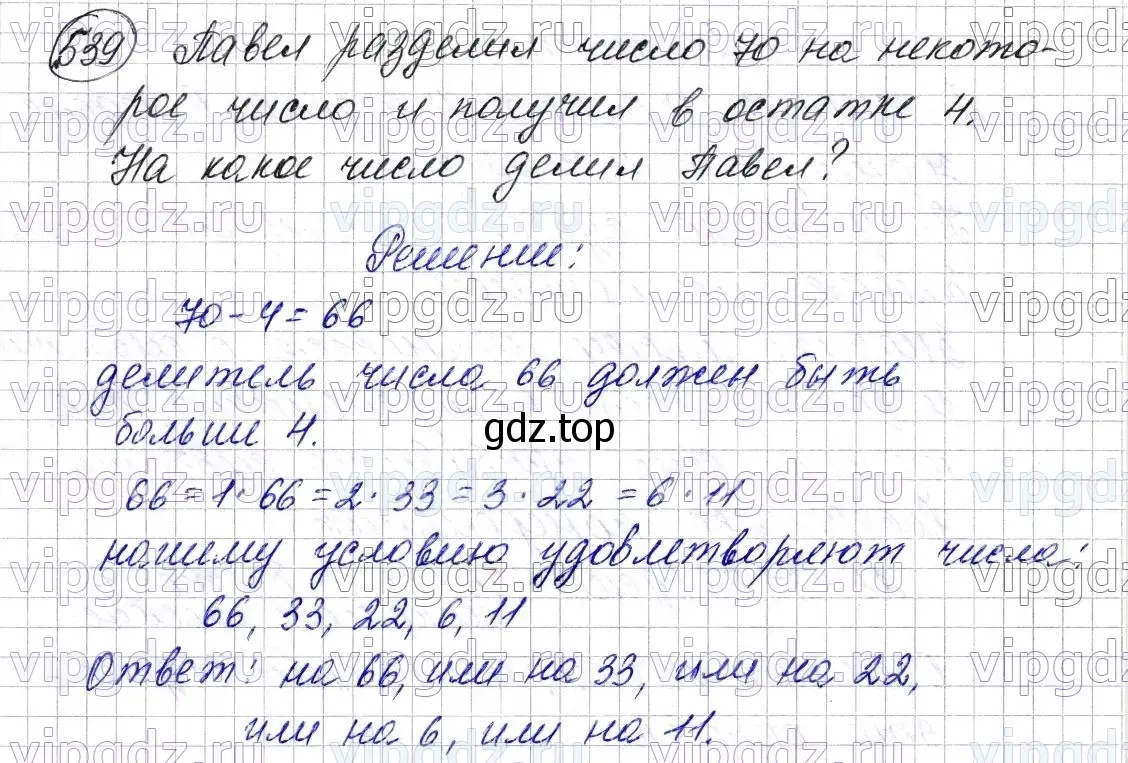 539 Павел разделил число 70 на некото-
рое число и получил в остатке 4.
На какое число делил Павел?
Решение:
70 - 4 = 66
делитель числа 66 должен быть
больше 4.
gdz.top
66 = 1 · 66 = 2 · 33 = 3 · 22 = 6 · 11
нашему условию удовлетворяют числа:
66, 33, 22, 6, 11
Ответ: на 66, или на 33, или на 22,
или на 6, или на 11.
vipgdz.ru